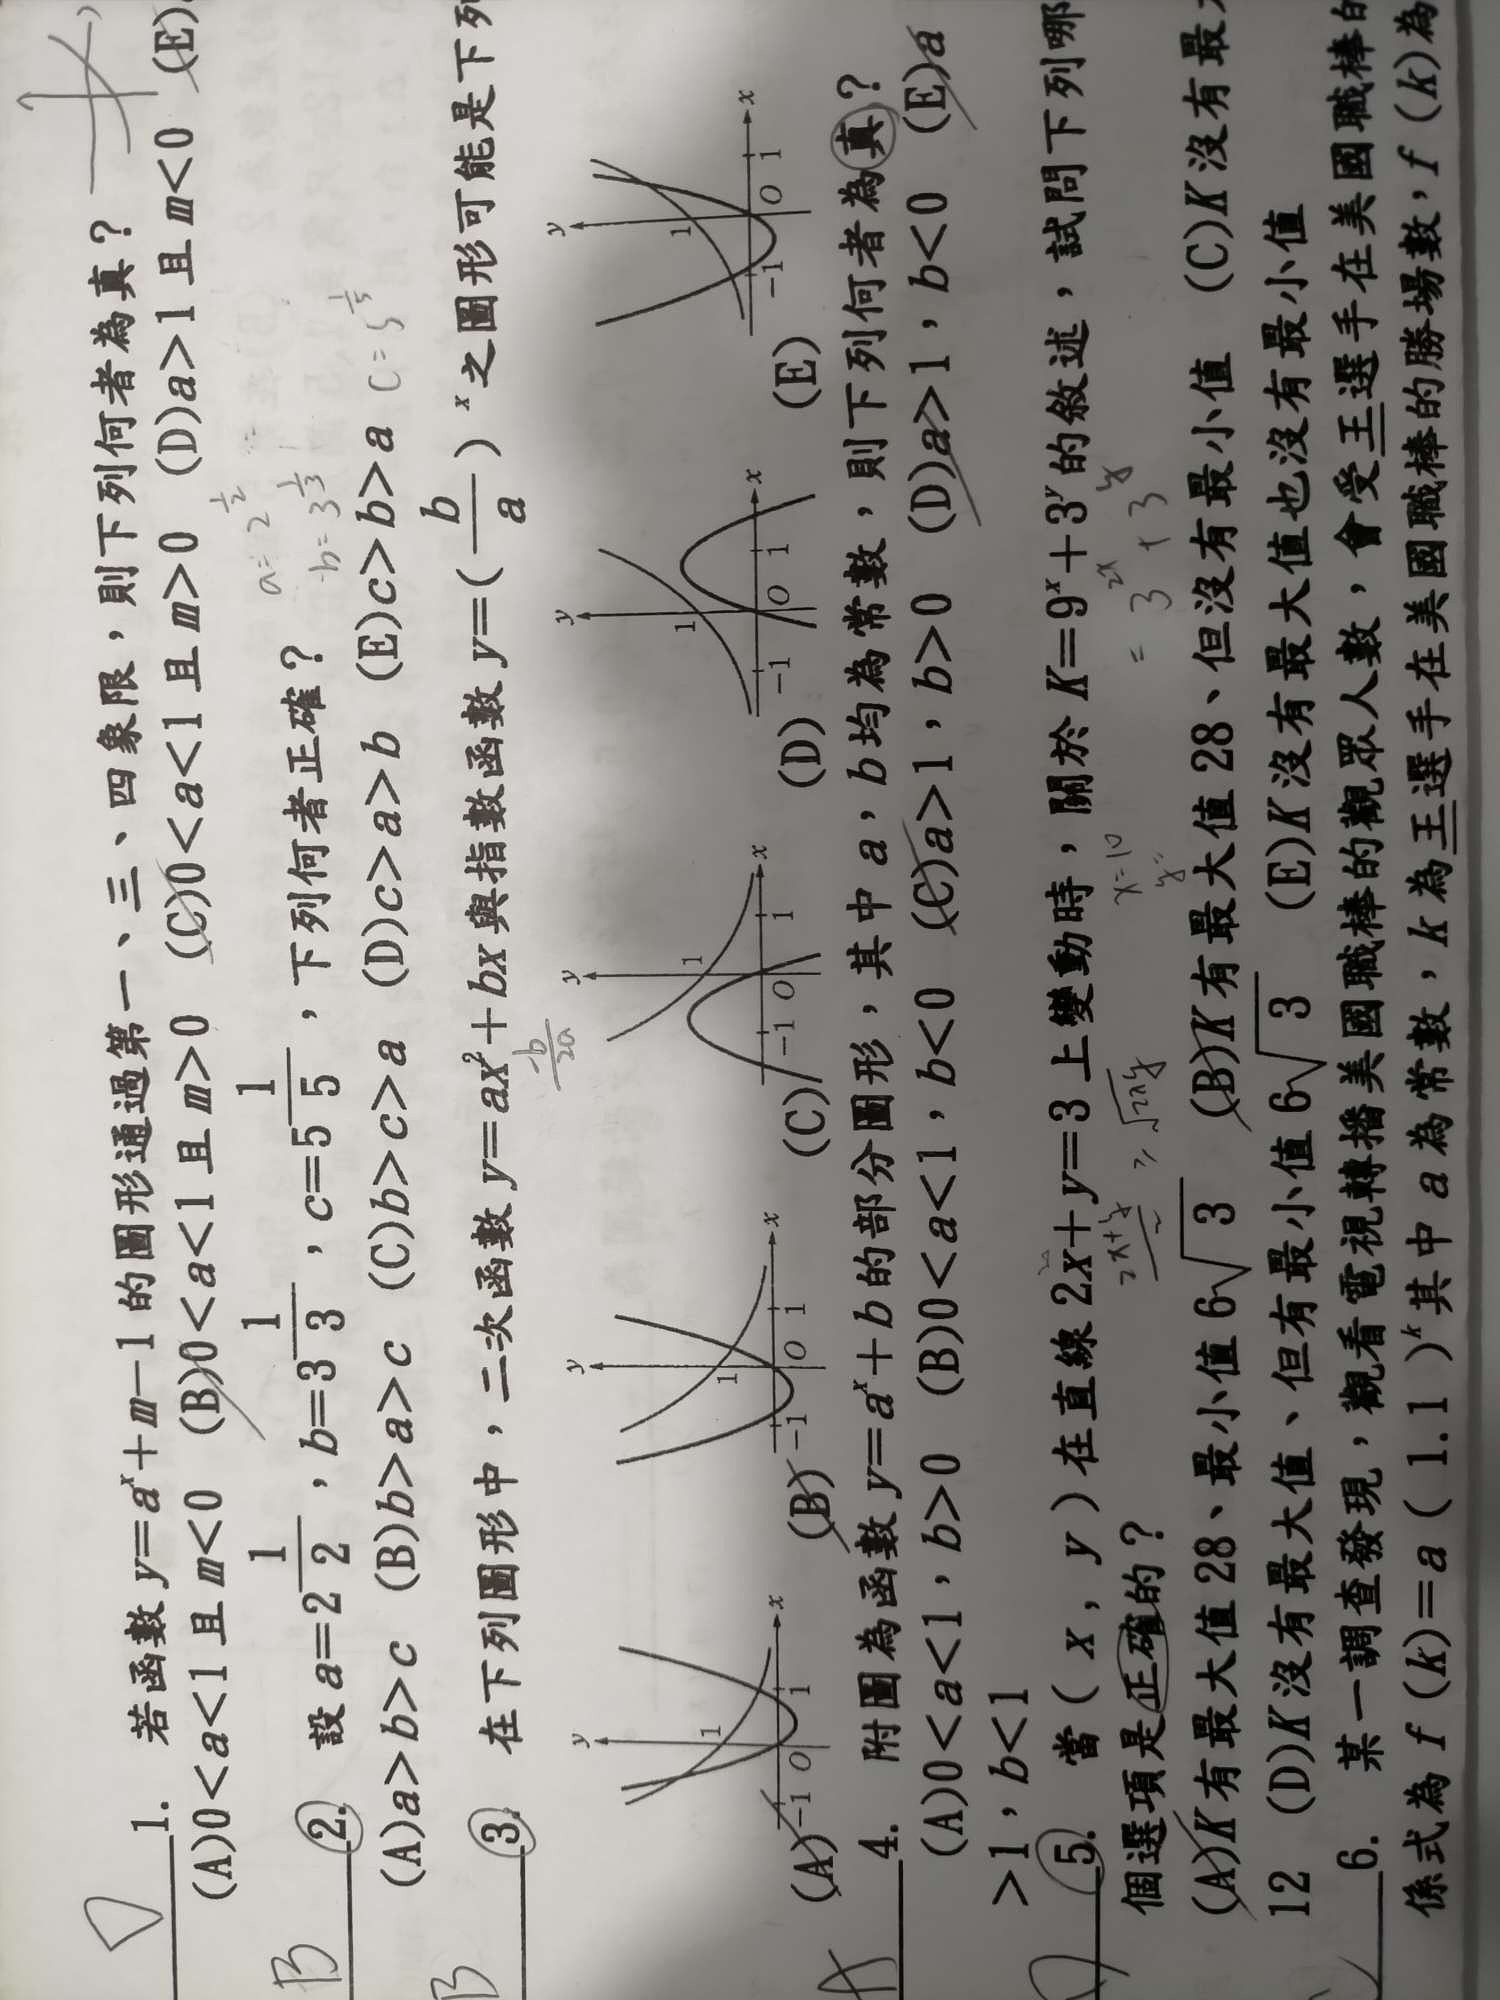 D 1. 若函數 y=aˣ+m−1 的圖形通過第一、三、四象限，則下列何者為真？
(A)0<a<1且m<0 (B)0<a<1且m>0 (C)0<a<1且m>0 (D)a>1且m<0 (E)
a=2^{1/2}
b=3^{1/3}
c=5^{1/5}
B 2. 設 a=2^{1/2}，b=3^{1/3}，c=5^{1/5}，下列何者正確？
(A)a>b>c (B)b>a>c (C)b>c>a (D)c>a>b (E)c>b>a
B 3. 在下列圖形中，二次函數 y=ax²+bx 與指數函數 y=(b/a)ˣ 之圖形可能是下列
-b/2a
(A) y x 1 −1 O 1
(B) y x 1 −1 O 1
(C) y x 1 −1 O 1
(D) y x 1 −1 O 1
(E) y x 1 −1 O 1
A 4. 附圖為函數 y=aˣ+b 的部分圖形，其中 a，b 均為常數，則下列何者為真？
(A)0<a<1，b>0 (B)0<a<1，b<0 (C)a>1，b>0 (D)a>1，b<0 (E)a
>1，b<1
5. 當（x，y）在直線 2x+y=3 上變動時，關於 K=9ˣ+3ʸ 的敘述，試問下列哪
個選項是正確的？
= 3^{2x} + 3^y
x=10
y=
(A)K 有最大值 28、最小值 6√3 (B)K 有最大值 28、但沒有最小值 (C)K 沒有最
12 (D)K 沒有最大值、但有最小值 6√3 (E)K 沒有最大值也沒有最小值
6. 某一調查發現，觀看電視轉播美國職棒的觀眾人數，會受王選手在美國職棒的
係式為 f(k)=a(1.1)ᵏ 其中 a 為常數，k 為王選手在美國職棒的勝場數，f(k)為